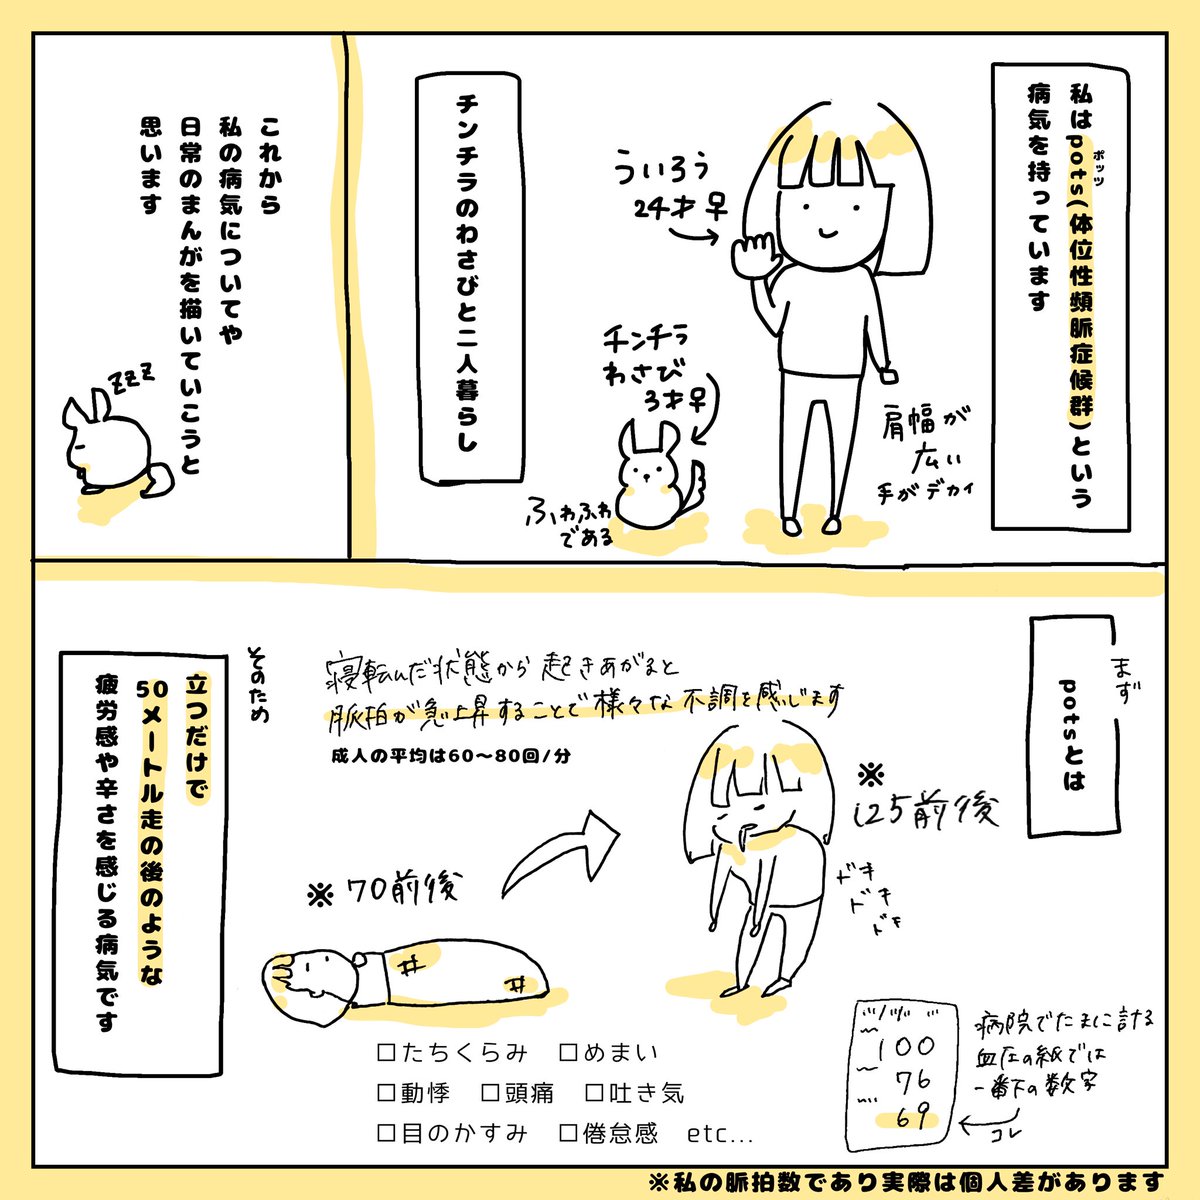 私はpots(体位性頻脈症候群)という
ポッツ
病気を持っています
ういろう
24才♀
肩幅が
広い
手がデカイ
チンチラ
わさび
3才♀
ふわふわ
である
チンチラのわさびと二人暮らし
これから
私の病気についてや
日常のまんがを描いていこうと
思います
zzz
まず
potsとは
寝転んだ状態から起きあがると
脈拍が急上昇することで様々な不調を感じます
成人の平均は60〜80回/分
※125前後
ドキ
ドキ
ドキ
※70前後
そのため
立つだけで
50メートル走の後のような
疲労感や辛さを感じる病気です
□たちくらみ □めまい
□動悸 □頭痛 □吐き気
□目のかすみ □倦怠感 etc...
100
76
69
病院でたまに計る
血圧の紙では
一番下の数字
コレ
※私の脈拍数であり実際は個人差があります